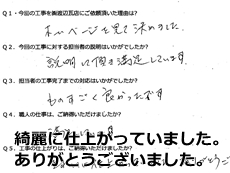 Q1・今回の工事を㈱渡辺瓦店にご依頼頂いた理由は?
ホームページを見て決めました。
Q2・今回の工事に対する担当者の説明はいかがでしたか?
説明に何の満足しています
Q3・担当者の工事完了までの対応はいかがでしたか?
ものすごく良かったです
Q4・職人の仕事は、ご納得いただけましたか?
綺麗に仕上がっていました。
Q5・工事の仕上がりは、ご納得いただけましたか?
ありがとうございました。